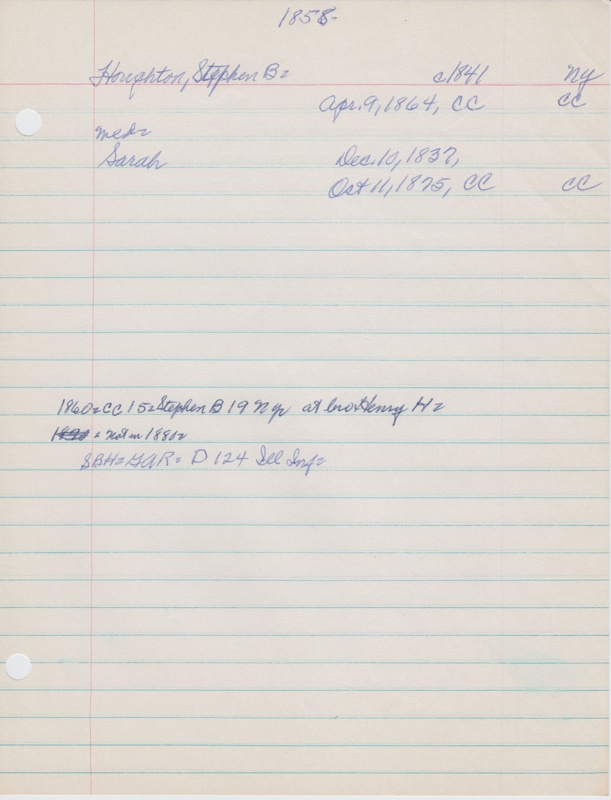 1858-
Houghton, Stephen B= c1841 NY
Apr. 9, 1864, CC CC
med=
Sarah Dec. 10, 1837,
Oct 11, 1875, CC CC
1860=CC 15=Stephen B 19 NY at bro Henry H=
= not in 1880=
SBH=GAR= D 124 Ill Inf=